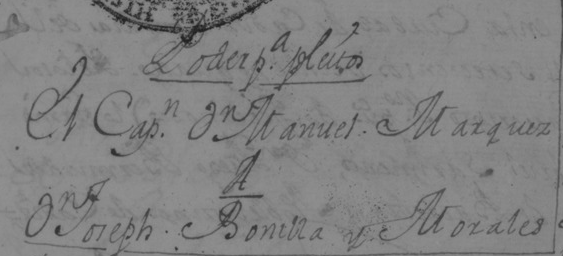 Poder p.ª pleitos
El Cap.n Dn Manuel Marquez
A
Dn Joseph Bonilla y Morales